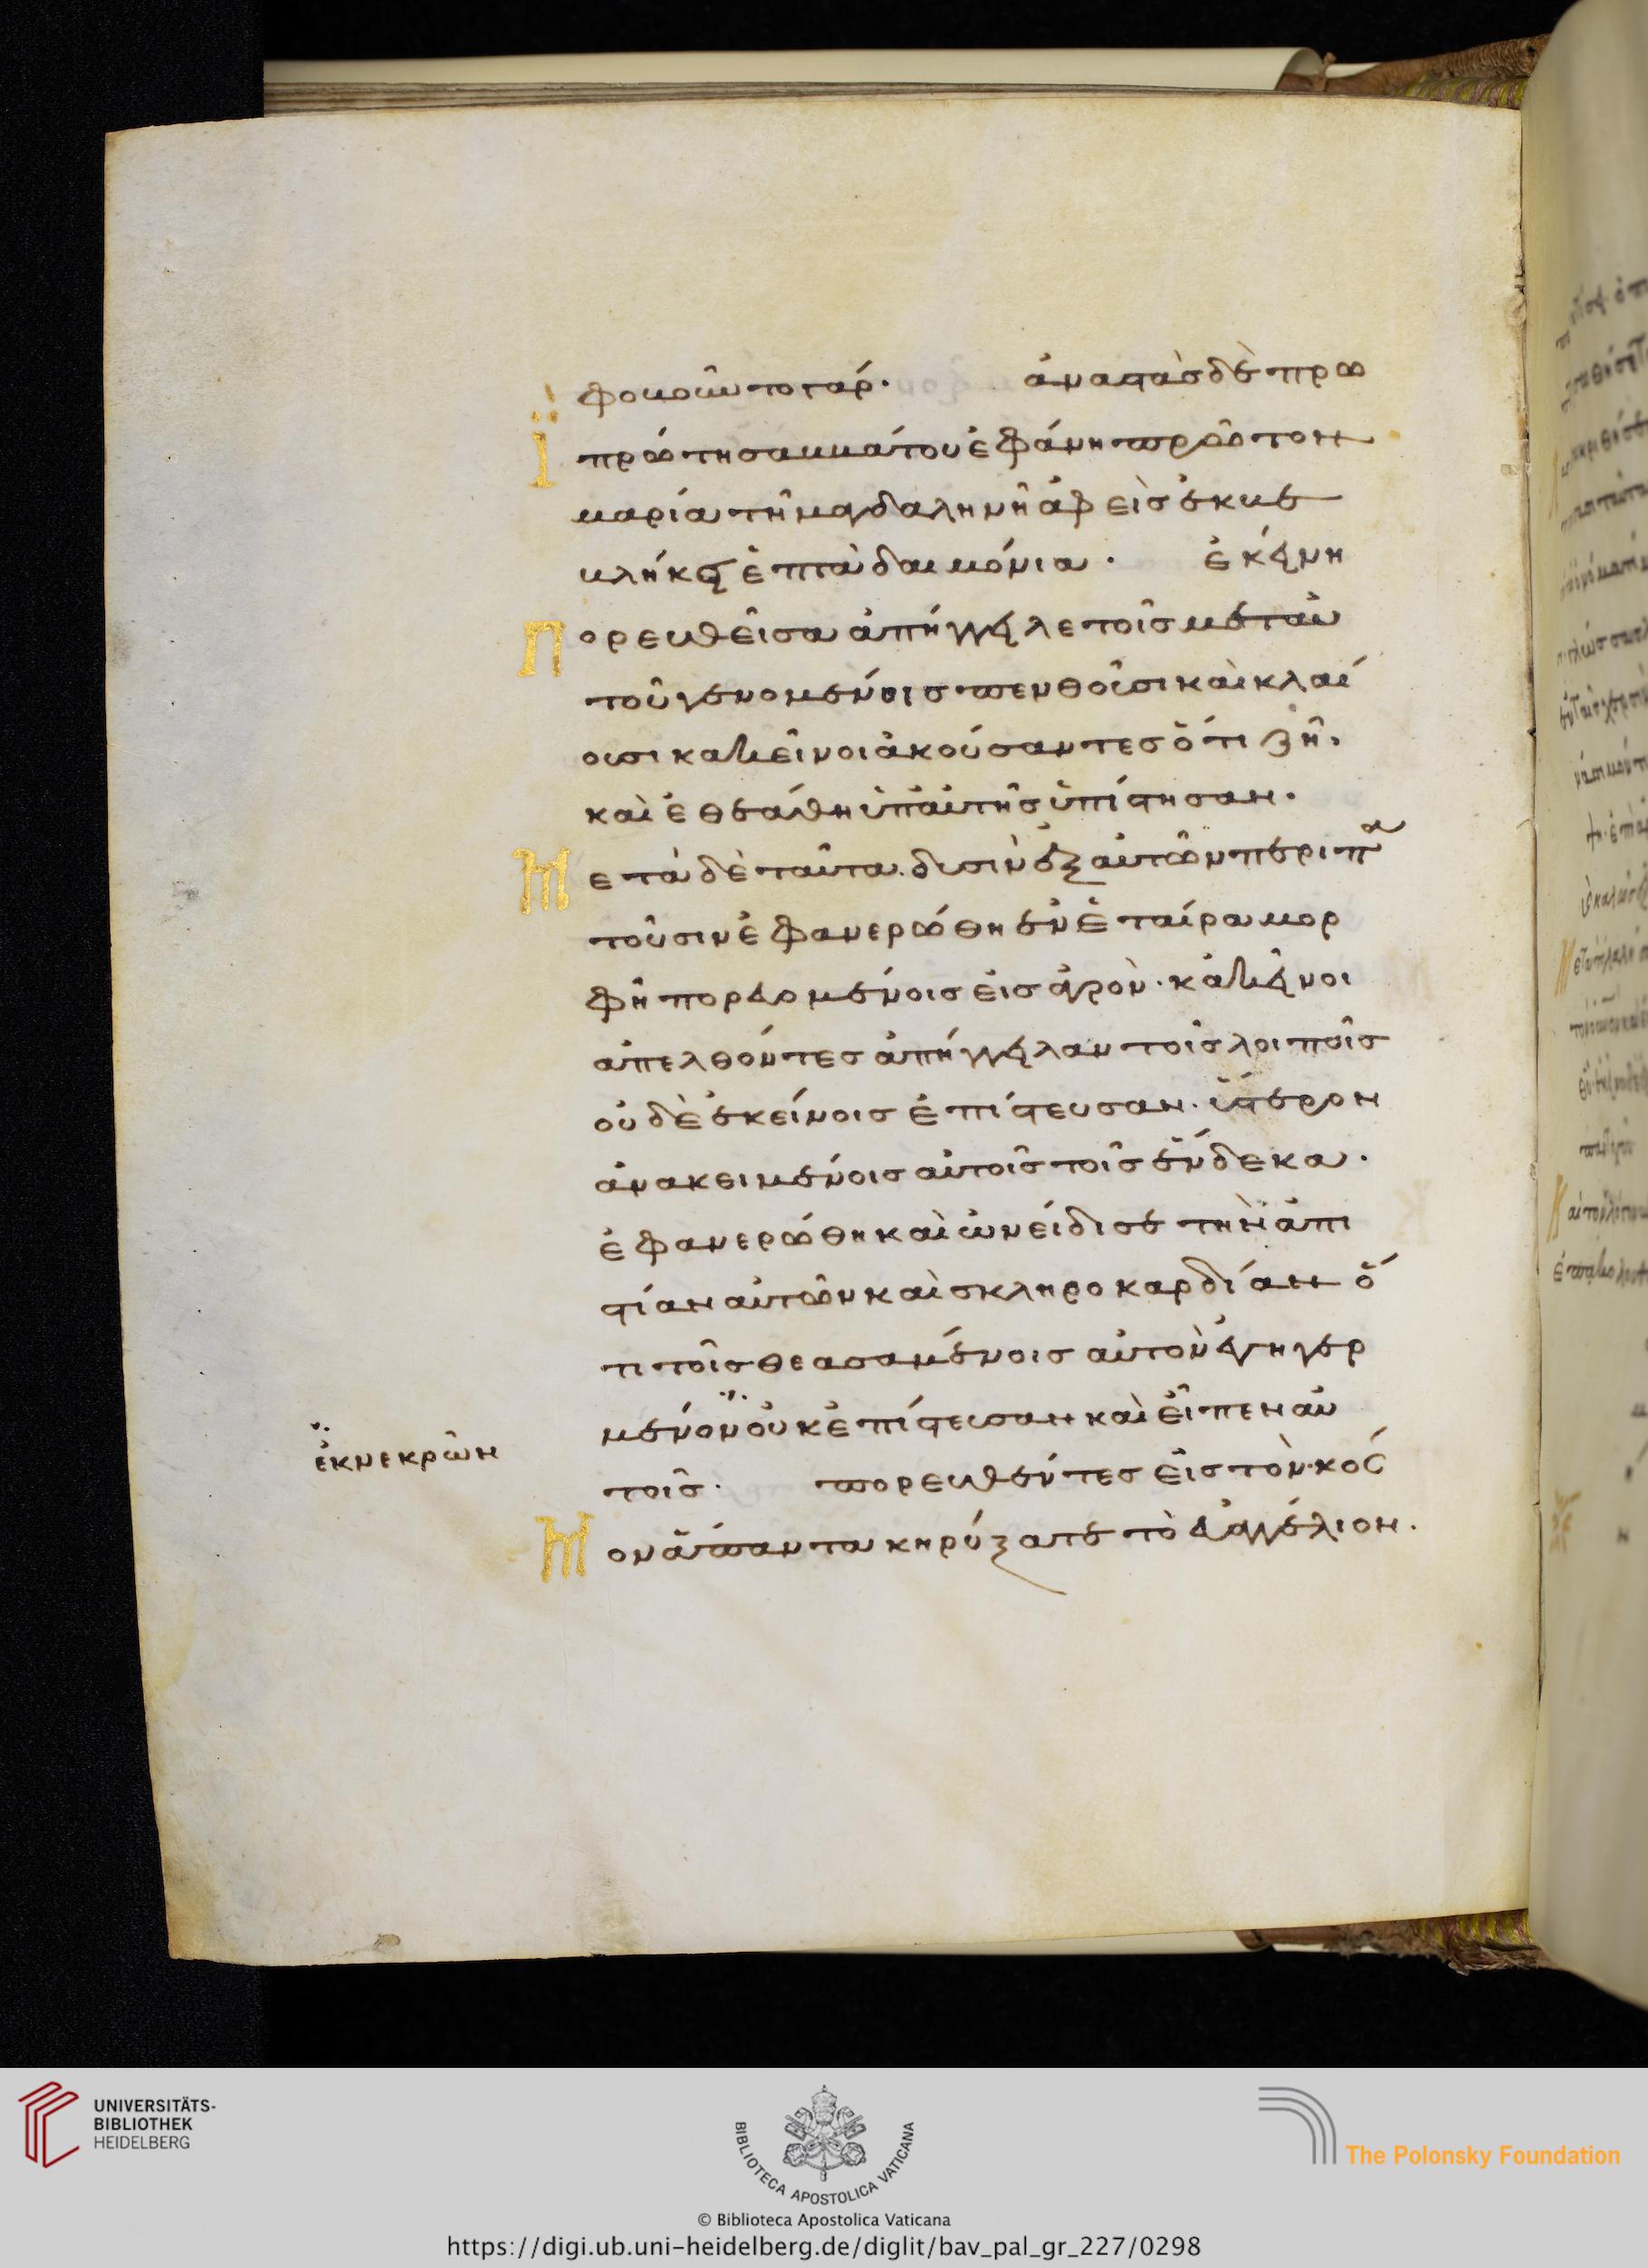 φοβοῦντο γάρ. ἀναστὰσ δὲ πρω
ῒ πρώτη σαββάτου ἐφάνη πρῶτον
μαρία τῆ μαγδαληνῆ ἀφ εἰσ ἐκβε
βλήκει ἑπτὰ δαιμόνια. ἐκείνη
Πορευθεῖσα ἀπήγγειλε τοῖσ μετ αὐ
τοῦ γενομένοισ πενθοῦσι καὶ κλαί
ουσι κακεῖνοι ἀκούσαντεσ ὅτι ζῆ.
καὶ ἐθεάθη ὑπ αὐτῆσ ἠπίστησαν.
Μετὰ δὲ ταῦτα. δυσὶν ἐξ αὐτῶν περιπα
τοῦσιν ἐφανερώθη ἐν ἑταίρα μορ
φῆ πορευομένοισ εἰσ ἀγρὸν. κακεῖνοι
ἀπελθόντεσ ἀπήγγειλαν τοῖσ λοιποῖσ
οὐδὲ ἐκείνοισ ἐπίστευσαν. ὕστερον
ἀνακειμένοισ αὐτοῖσ τοῖσ ἕνδεκα.
ἐφανερώθη καὶ ὠνείδισε τὴν ἀπι
στίαν αὐτῶν καὶ σκληροκαρδίαν ὅ
τι τοῖσ θεασαμένοισ αὐτὸν ἐγηγερ
μένον οὐκ ἐπίστευσαν καὶ εἶπεν αὐ
ἐκ νεκρῶν
τοῖσ. πορευθέντεσ εἰσ τὸν κόσ
Μον ἅπαντα κηρύξατε τὸ εὐαγγέλιον.
UNIVERSITÄTS-
BIBLIOTHEK
HEIDELBERG
BIBLIOTECA APOSTOLICA VATICANA
The Polonsky Foundation
© Biblioteca Apostolica Vaticana
https://digi.ub.uni-heidelberg.de/diglit/bav_pal_gr_227/0298